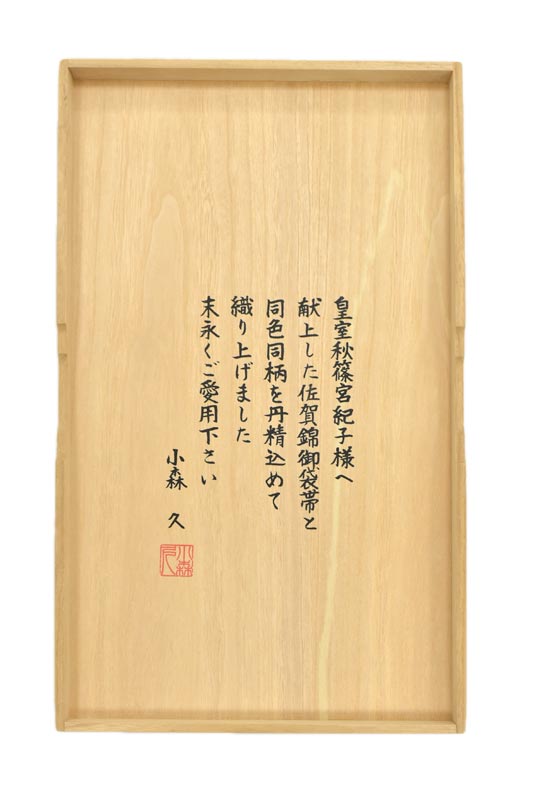 皇室秋篠宮紀子様へ
献上した佐賀錦御袋帯と
同色同柄を丹精込めて
織り上げました
末永くご愛用下さい
小森 久
小森久